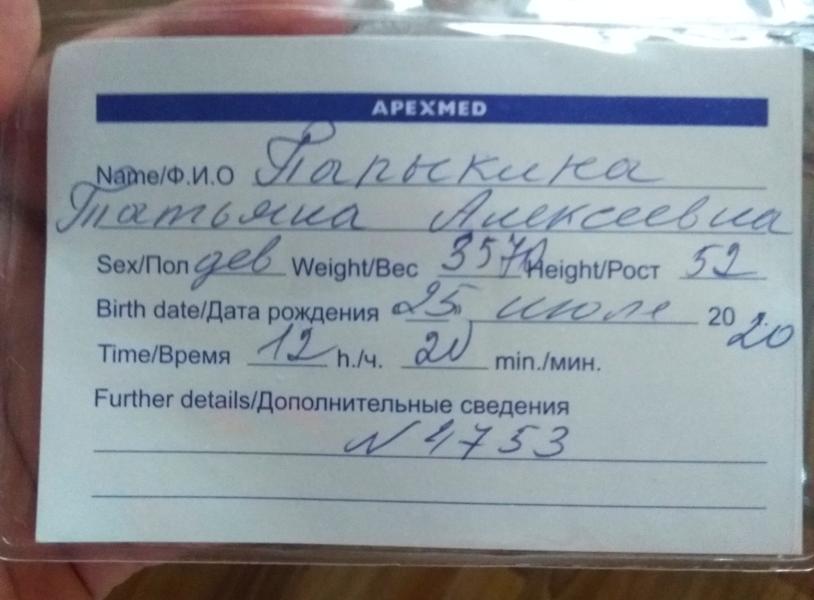 APEXMED
Name/Ф.И.О Парыкина
Татьяна Алексеевна
Sex/Пол дев Weight/Вес 3570 Height/Рост 52
Birth date/Дата рождения 25 июле 20 20
Time/Время 12 h./ч. 20 min./мин.
Further details/Дополнительные сведения
N 4753